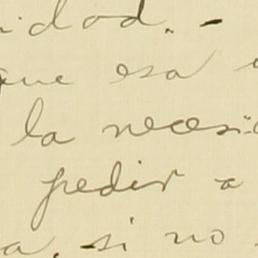 idad. -
que esa
la neces-
pedir a
a. si no